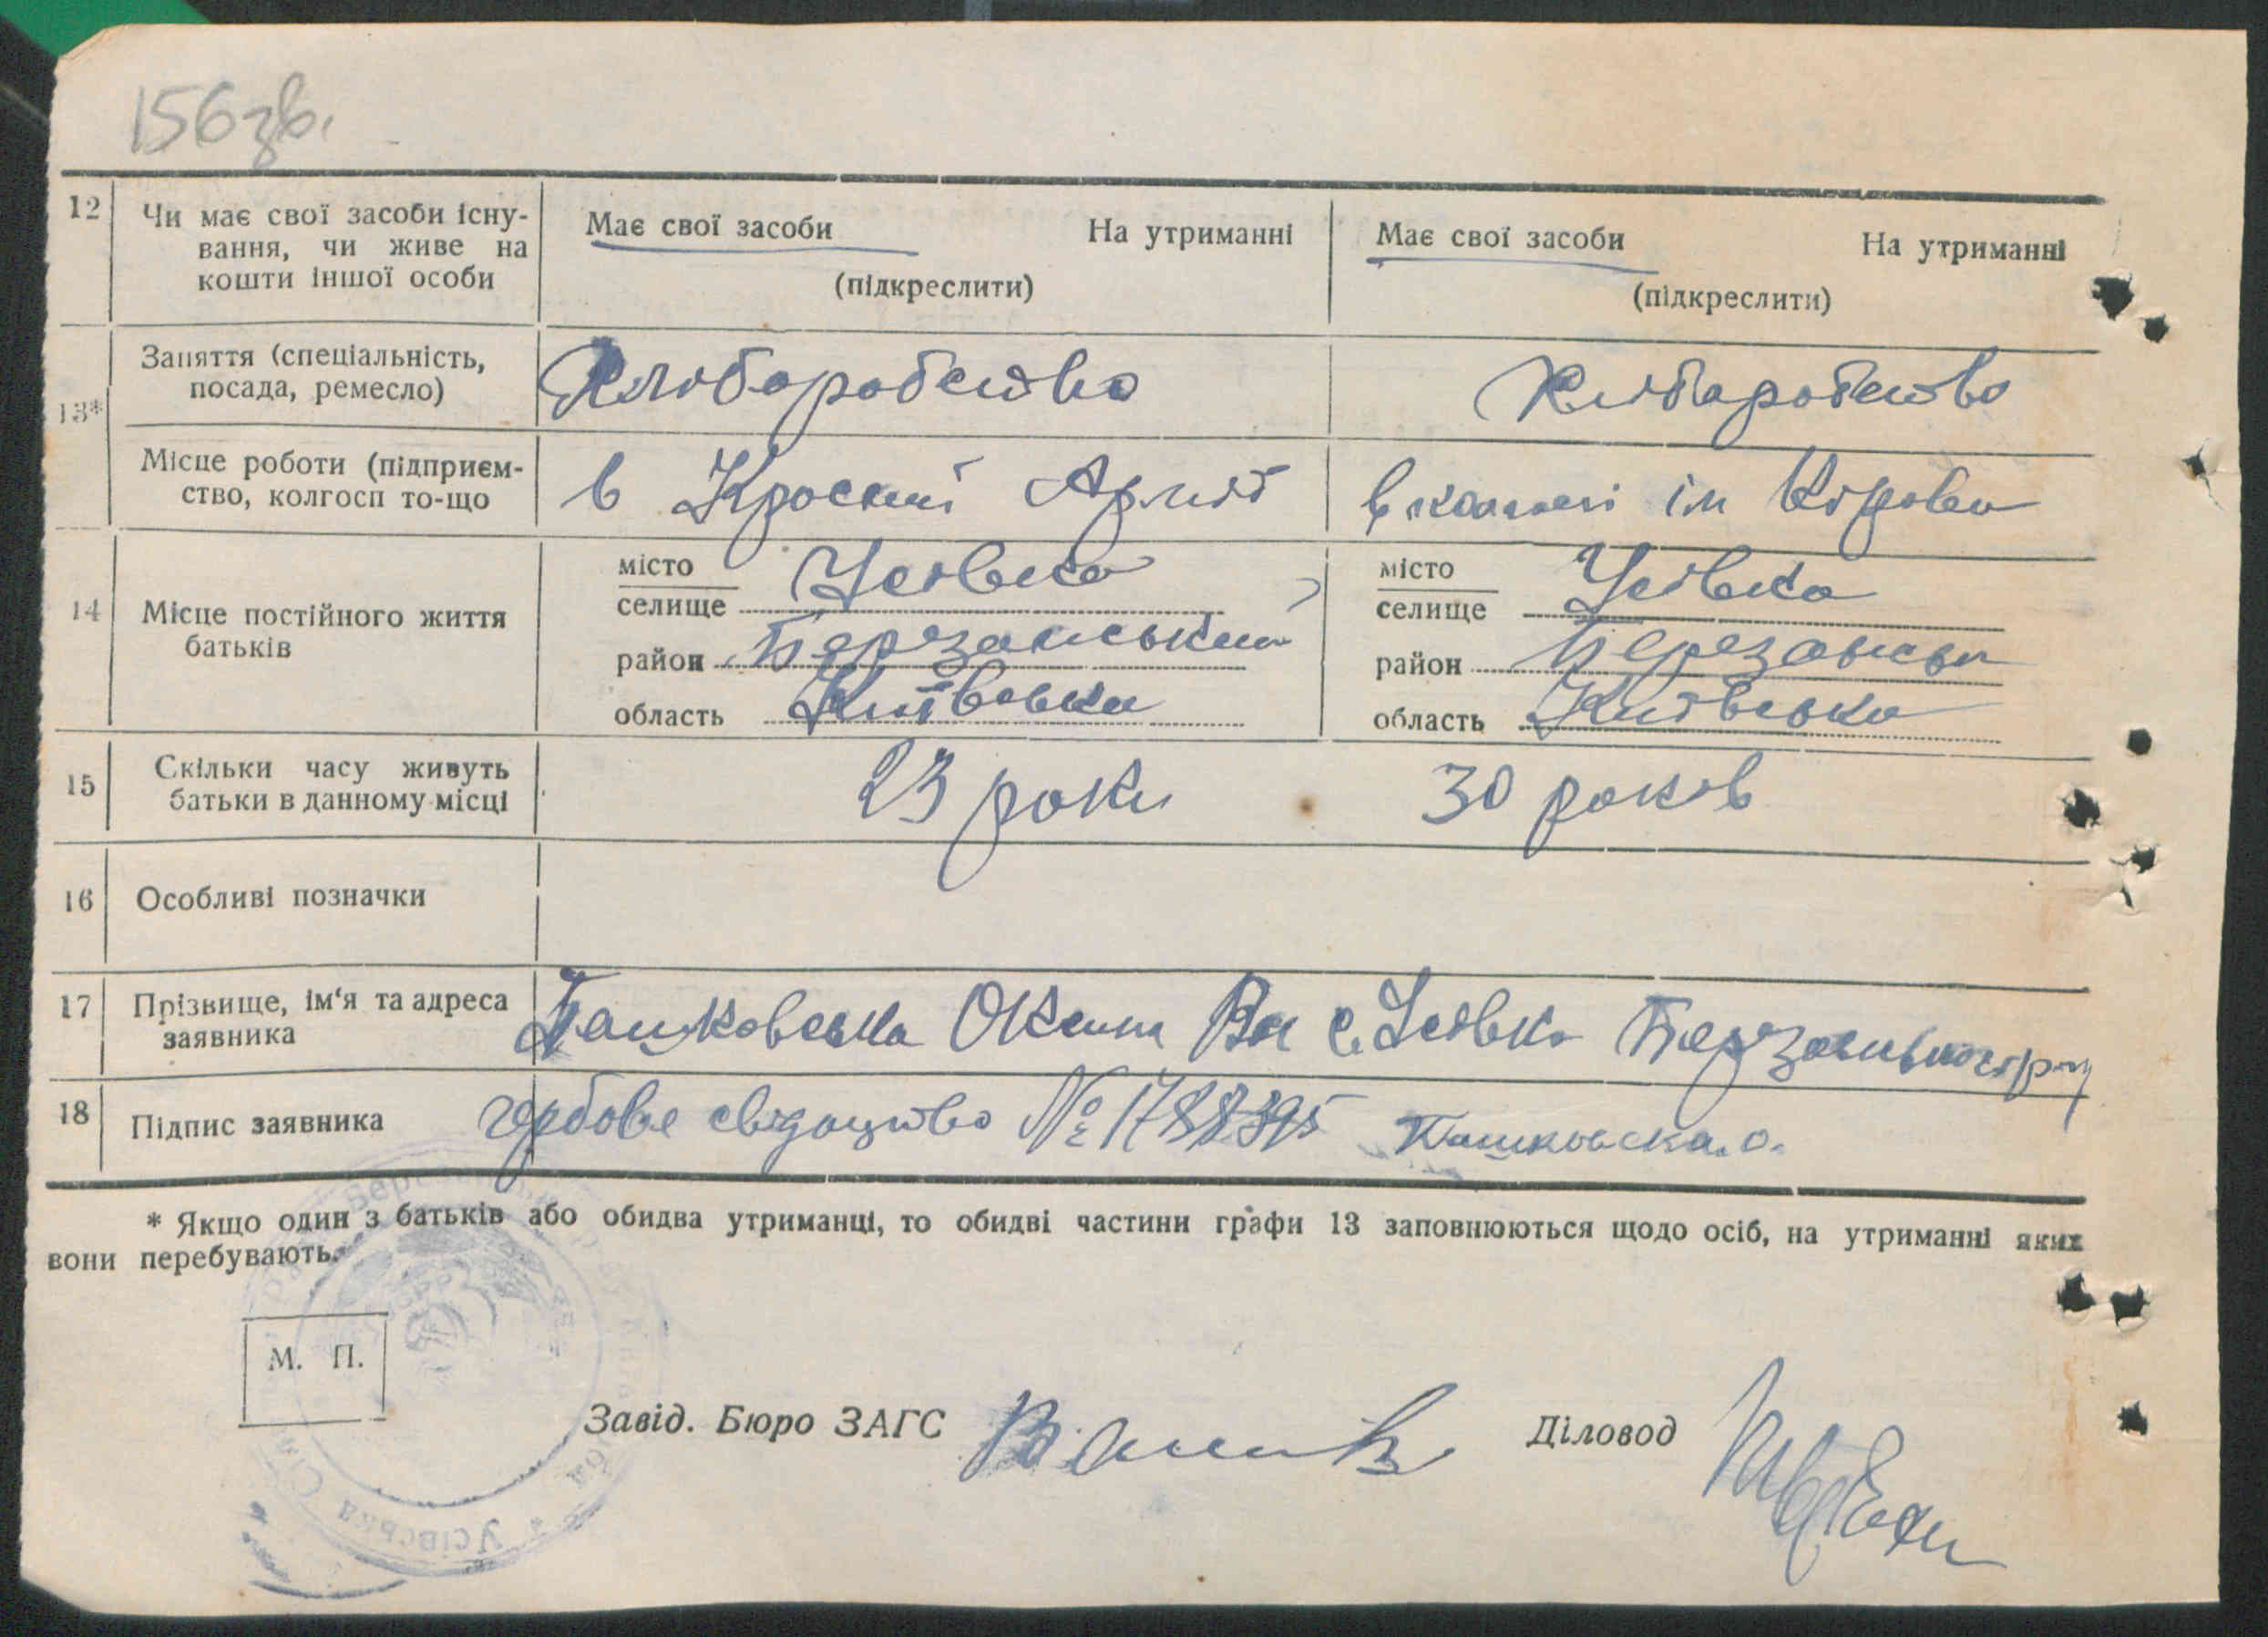 156зв.
12 Чи має свої засоби існу-
вання, чи живе на
кошти іншої особи
Має свої засоби На утриманні
(підкреслити)
Має свої засоби На утриманні
(підкреслити)
13*
Заняття (спеціальність,
посада, ремесло)
Хліборобство
Хліборобство
Місце роботи (підприєм-
ство, колгосп то-що
в Красній Армії
в колгоспі ім Кірова
14 Місце постійного життя
батьків
місто
селище Усівка
район Березанський
область Київська
місто
селище Усівка
район Березанськи
область Київська
15 Скільки часу живуть
батьки в данному місці
23 роки
30 років
16 Особливі позначки
17 Прізвище, ім'я та адреса
заявника
Пашковська Оксана с. Усівка Березанського р-ну
18 Підпис заявника
гербове свідоцтво № 1788395 Пашковска. о.
* Якщо один з батьків або обидва утриманці, то обидві частини графи 13 заповнюються щодо осіб, на утриманні яких
вони перебувають.
М. П.
Завід. Бюро ЗАГС
Діловод
Усівська